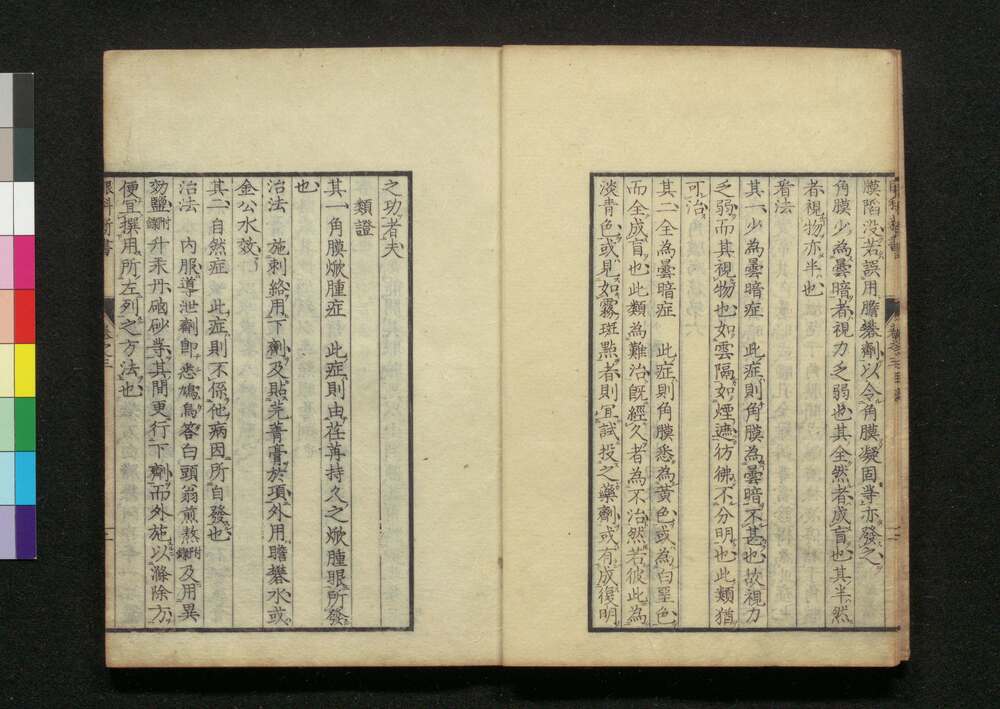 膜陷没若誤用膽礬劑以令角膜凝固等亦發之
角膜少為曇暗者視力之弱也其全然者成盲也其半然
者視物亦半也
看法
其一少為曇暗症 此症則角膜為曇暗不甚也故視力
乏弱而其視物也如雲隔如煙遮彷彿不分明也此類猶
可治
其二全為曇暗症 此症則角膜悉為黄色或為白堊色
而全成盲也此類為難治既經久者為不治然若彼此為
淡青色或見如霧斑點者則宜試投之藥劑或有成復明
之功者夫
類證
其一角膜焮腫症 此症則由荏苒持久之焮腫眼所發
也
治法 施刺絡用下劑及貼芫菁膏於項外用膽礬水或
金公水效
其二自然症 此症則不係他病因所自發也
治法 内服導泄劑即悉鳩鳥答白頭翁煎熬附錄及用異
効鹽附錄升汞丹硇砂等其間更行下劑而外施以滌除方
便宜撰用所左列之方法也
眼科新書
卷之三